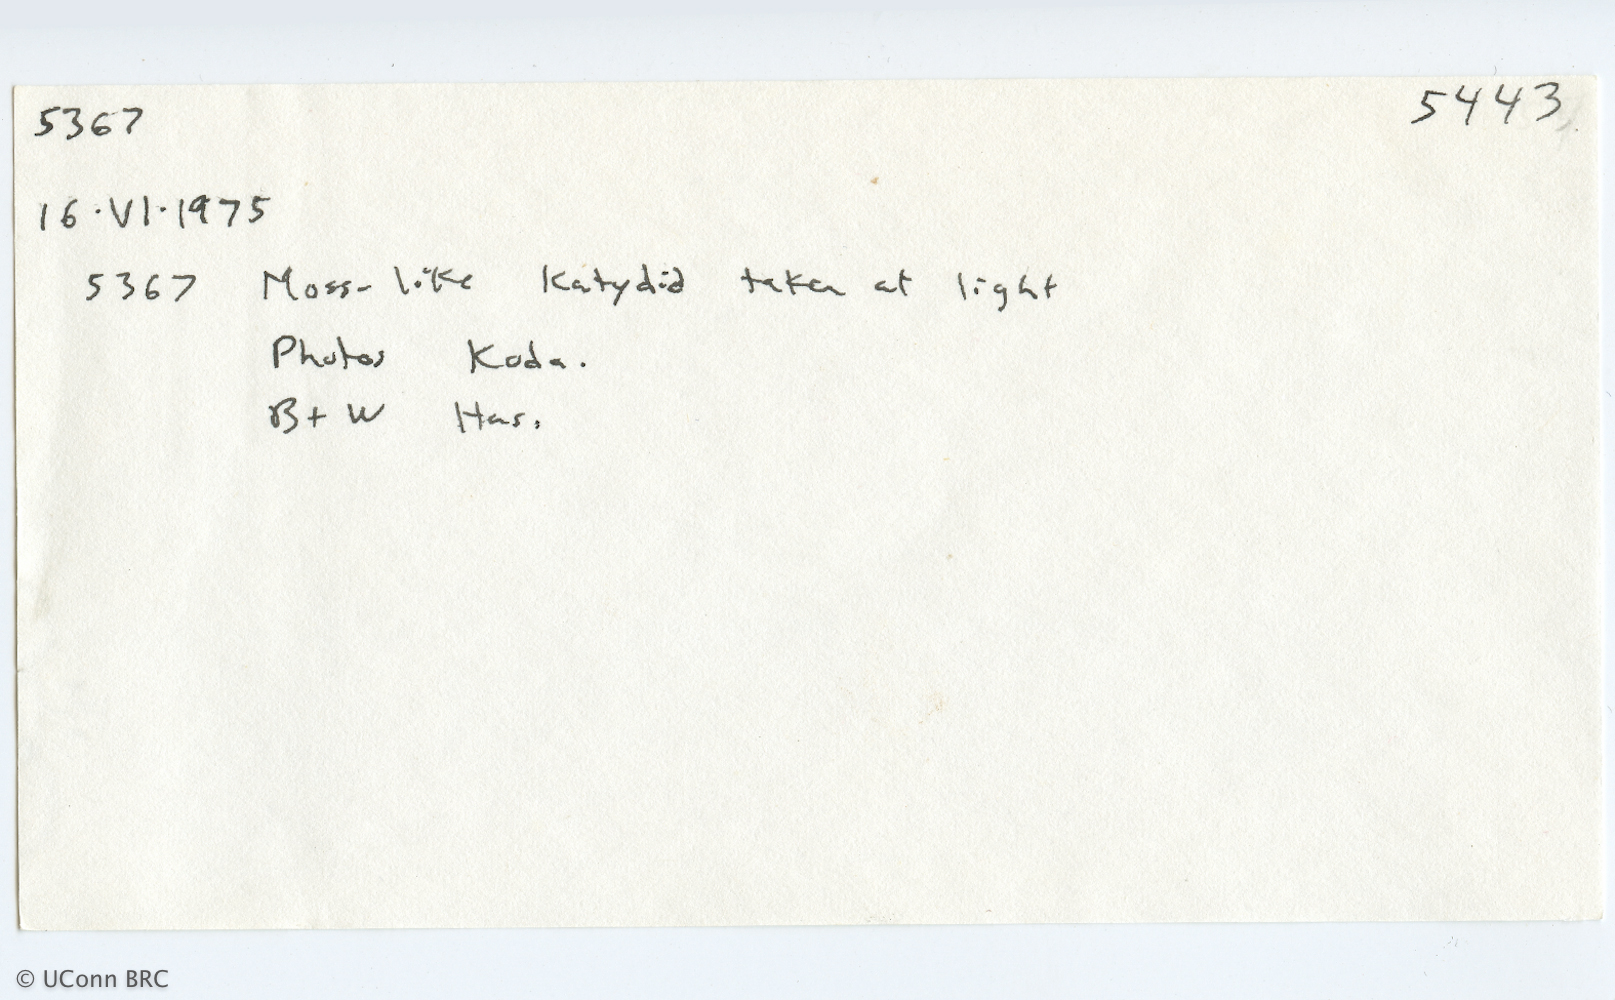 5367 5443
16·VI·1975
5367 Moss-like Katydid taken at light
Photos Koda.
B+W Has.
© UConn BRC